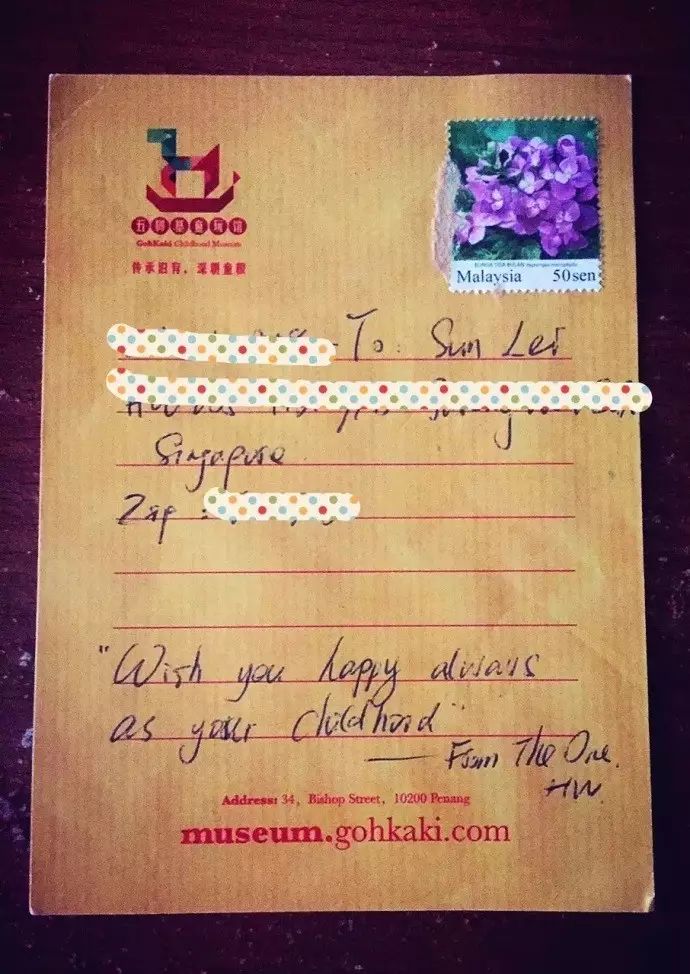 五個基童玩館
GohKaki Childhood Museum
传承旧有，深耕童般
BUNGA TIGA BULAN
Malaysia 50sen
To: Sun Lei
Singapore
Zip :
"Wish you happy always
as your childhood"
— From The One.
HW.
Address: 34, Bishop Street, 10200 Penang
museum.gohkaki.com